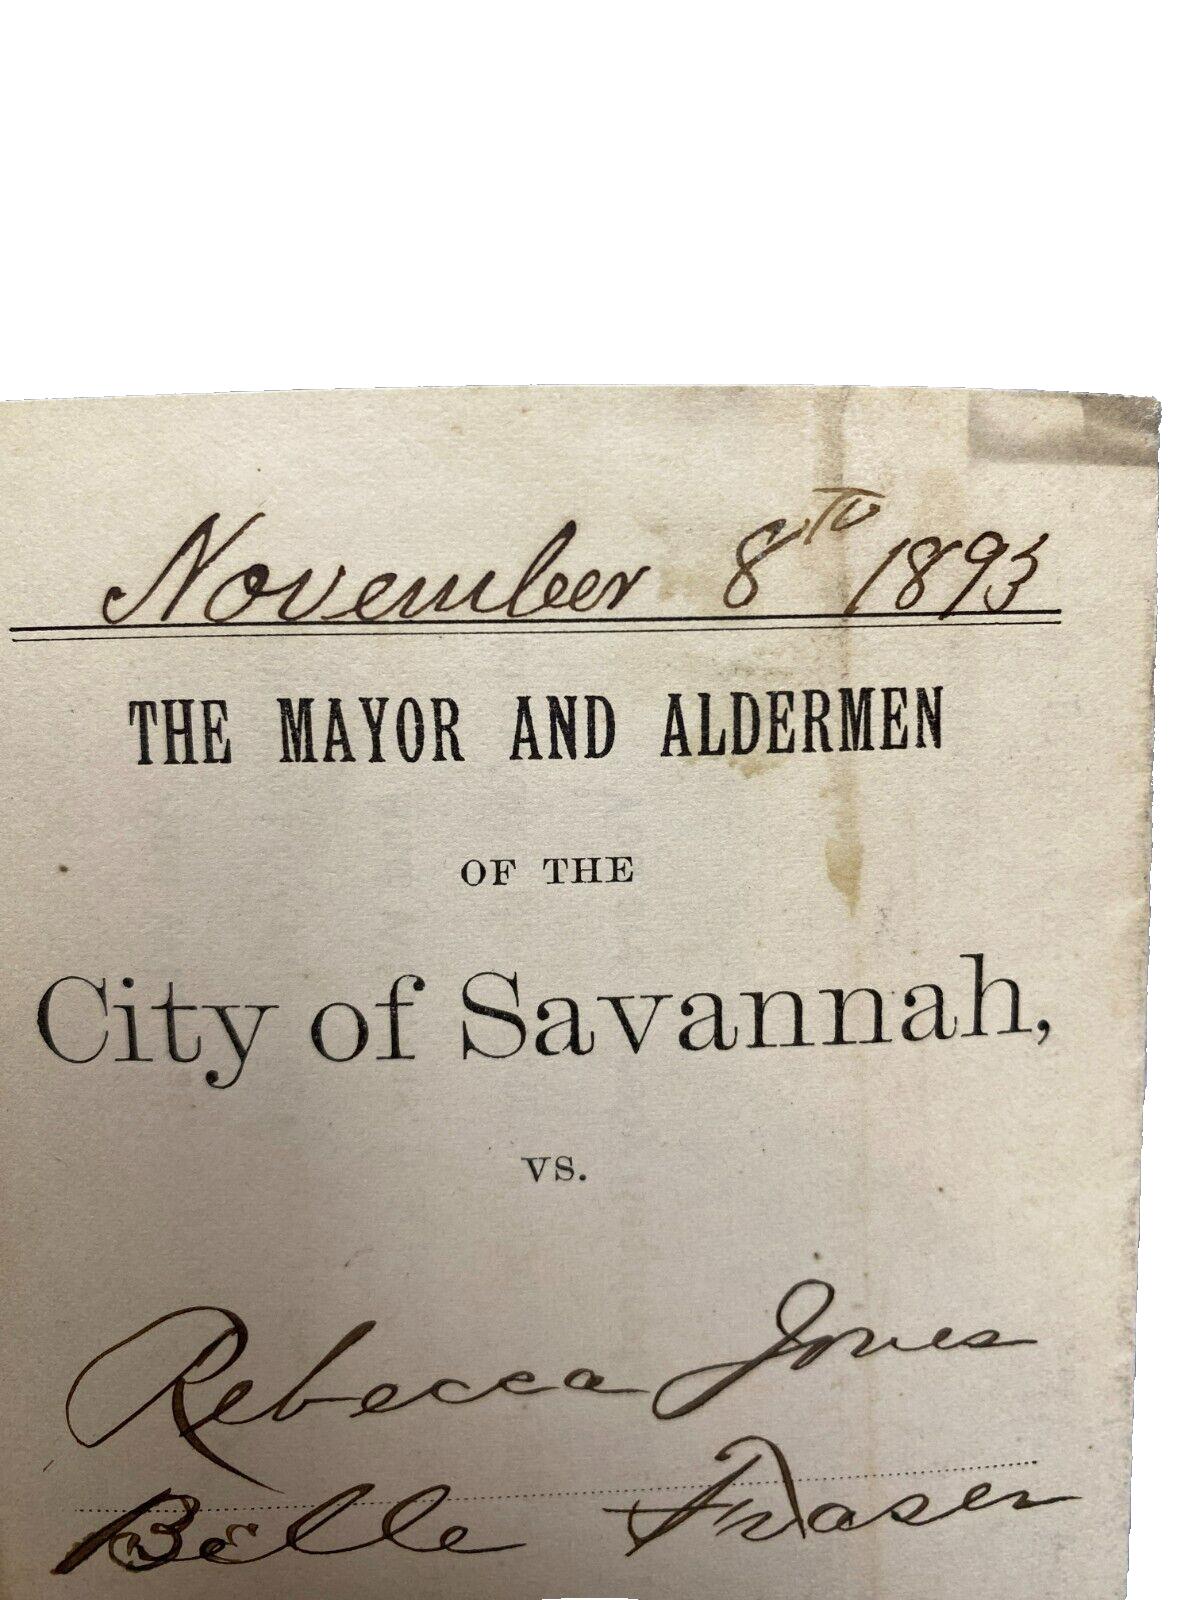 November 8TH 1893
THE MAYOR AND ALDERMEN
OF THE
City of Savannah,
VS.
Rebecca Jones
Belle Fraser